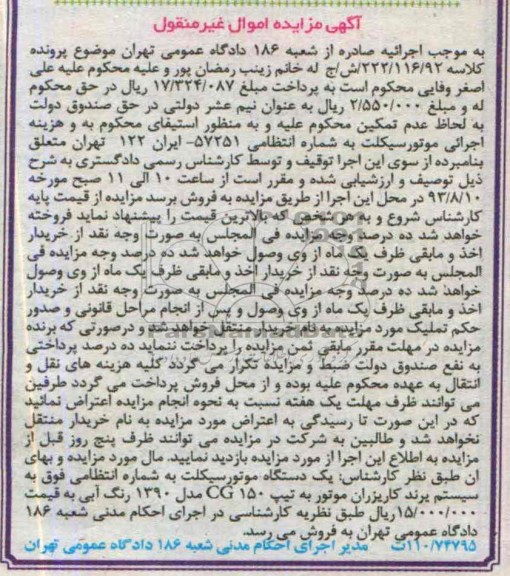 آگهی مزایده اموال غیرمنقول
به موجب اجرائیه صادره از شعبه ۱۸۶ دادگاه عمومی تهران موضوع پرونده
کلاسه ۲۲۲/۱۱۶/۹۲/ش/ج له خانم زینب رمضان پور و علیه محکوم علیه علی
اصغر وفایی محکوم است به پرداخت مبلغ ۱۷/۳۲۴/۰۸۷ ریال در حق محکوم
له و مبلغ ۲/۵۵۰/۰۰۰ ریال به عنوان نیم عشر دولتی در حق صندوق دولت
به لحاظ عدم تمکین محکوم علیه و به منظور استیفای محکوم به و هزینه
اجرائی موتورسیکلت به شماره انتظامی ۵۷۲۵۱- ایران ۱۲۲ تهران متعلق
بنامبرده از سوی این اجرا توقیف و توسط کارشناس رسمی دادگستری به شرح
ذیل توصیف و ارزشیابی شده و مقرر است از ساعت ۱۰ الی ۱۱ صبح مورخه
۹۳/۸/۱۰ در محل این اجرا از طریق مزایده به فروش برسد مزایده از قیمت پایه
کارشناس شروع و به هر شخصی که بالاترین قیمت را پیشنهاد نماید فروخته
خواهد شد ده درصد وجه مزایده فی المجلس به صورت وجه نقد از خریدار
اخذ و مابقی ظرف یک ماه از وی وصول خواهد شد ده درصد وجه مزایده فی
المجلس به صورت وجه نقد از خریدار اخذ و مابقی ظرف یک ماه از وی وصول
خواهد شد ده درصد وجه مزایده فی المجلس به صورت وجه نقد از خریدار
اخذ و مابقی ظرف یک ماه از وی وصول و پس از انجام مراحل قانونی و صدور
حکم تملیک مورد مزایده به نام خریدار منتقل خواهد شد و درصورتی که برنده
مزایده در مهلت مقرر مابقی ثمن مزایده را پرداخت ننماید ده درصد پرداختی
به نفع صندوق دولت ضبط و مزایده تکرار می گردد کلیه هزینه های نقل و
انتقال به عهده محکوم علیه بوده و از محل فروش پرداخت می گردد طرفین
می توانند ظرف مهلت یک هفته نسبت به نحوه انجام مزایده اعتراض نمائید
که در این صورت تا رسیدگی به اعتراض مورد مزایده به نام خریدار منتقل
نخواهد شد و طالبین به شرکت در مزایده می توانند ظرف پنج روز قبل از
مزایده به اطلاع این اجرا از مورد مزایده بازدید نمایند. مال مورد مزایده و بهای
ان طبق نظر کارشناس: یک دستگاه موتورسیکلت به شماره انتظامی فوق به
سیستم برند کاریزران موتور به تیپ CG ۱۵۰ مدل ۱۳۹۰ رنگ آبی به قیمت
۱۵/۰۰۰/۰۰۰ریال طبق نظریه کارشناسی در اجرای احکام مدنی شعبه ۱۸۶
دادگاه عمومی تهران به فروش می رسد.
۱۱۰/۷۴۷۹۵ت مدیر اجرای احکام مدنی شعبه ۱۸۶ دادگاه عمومی تهران